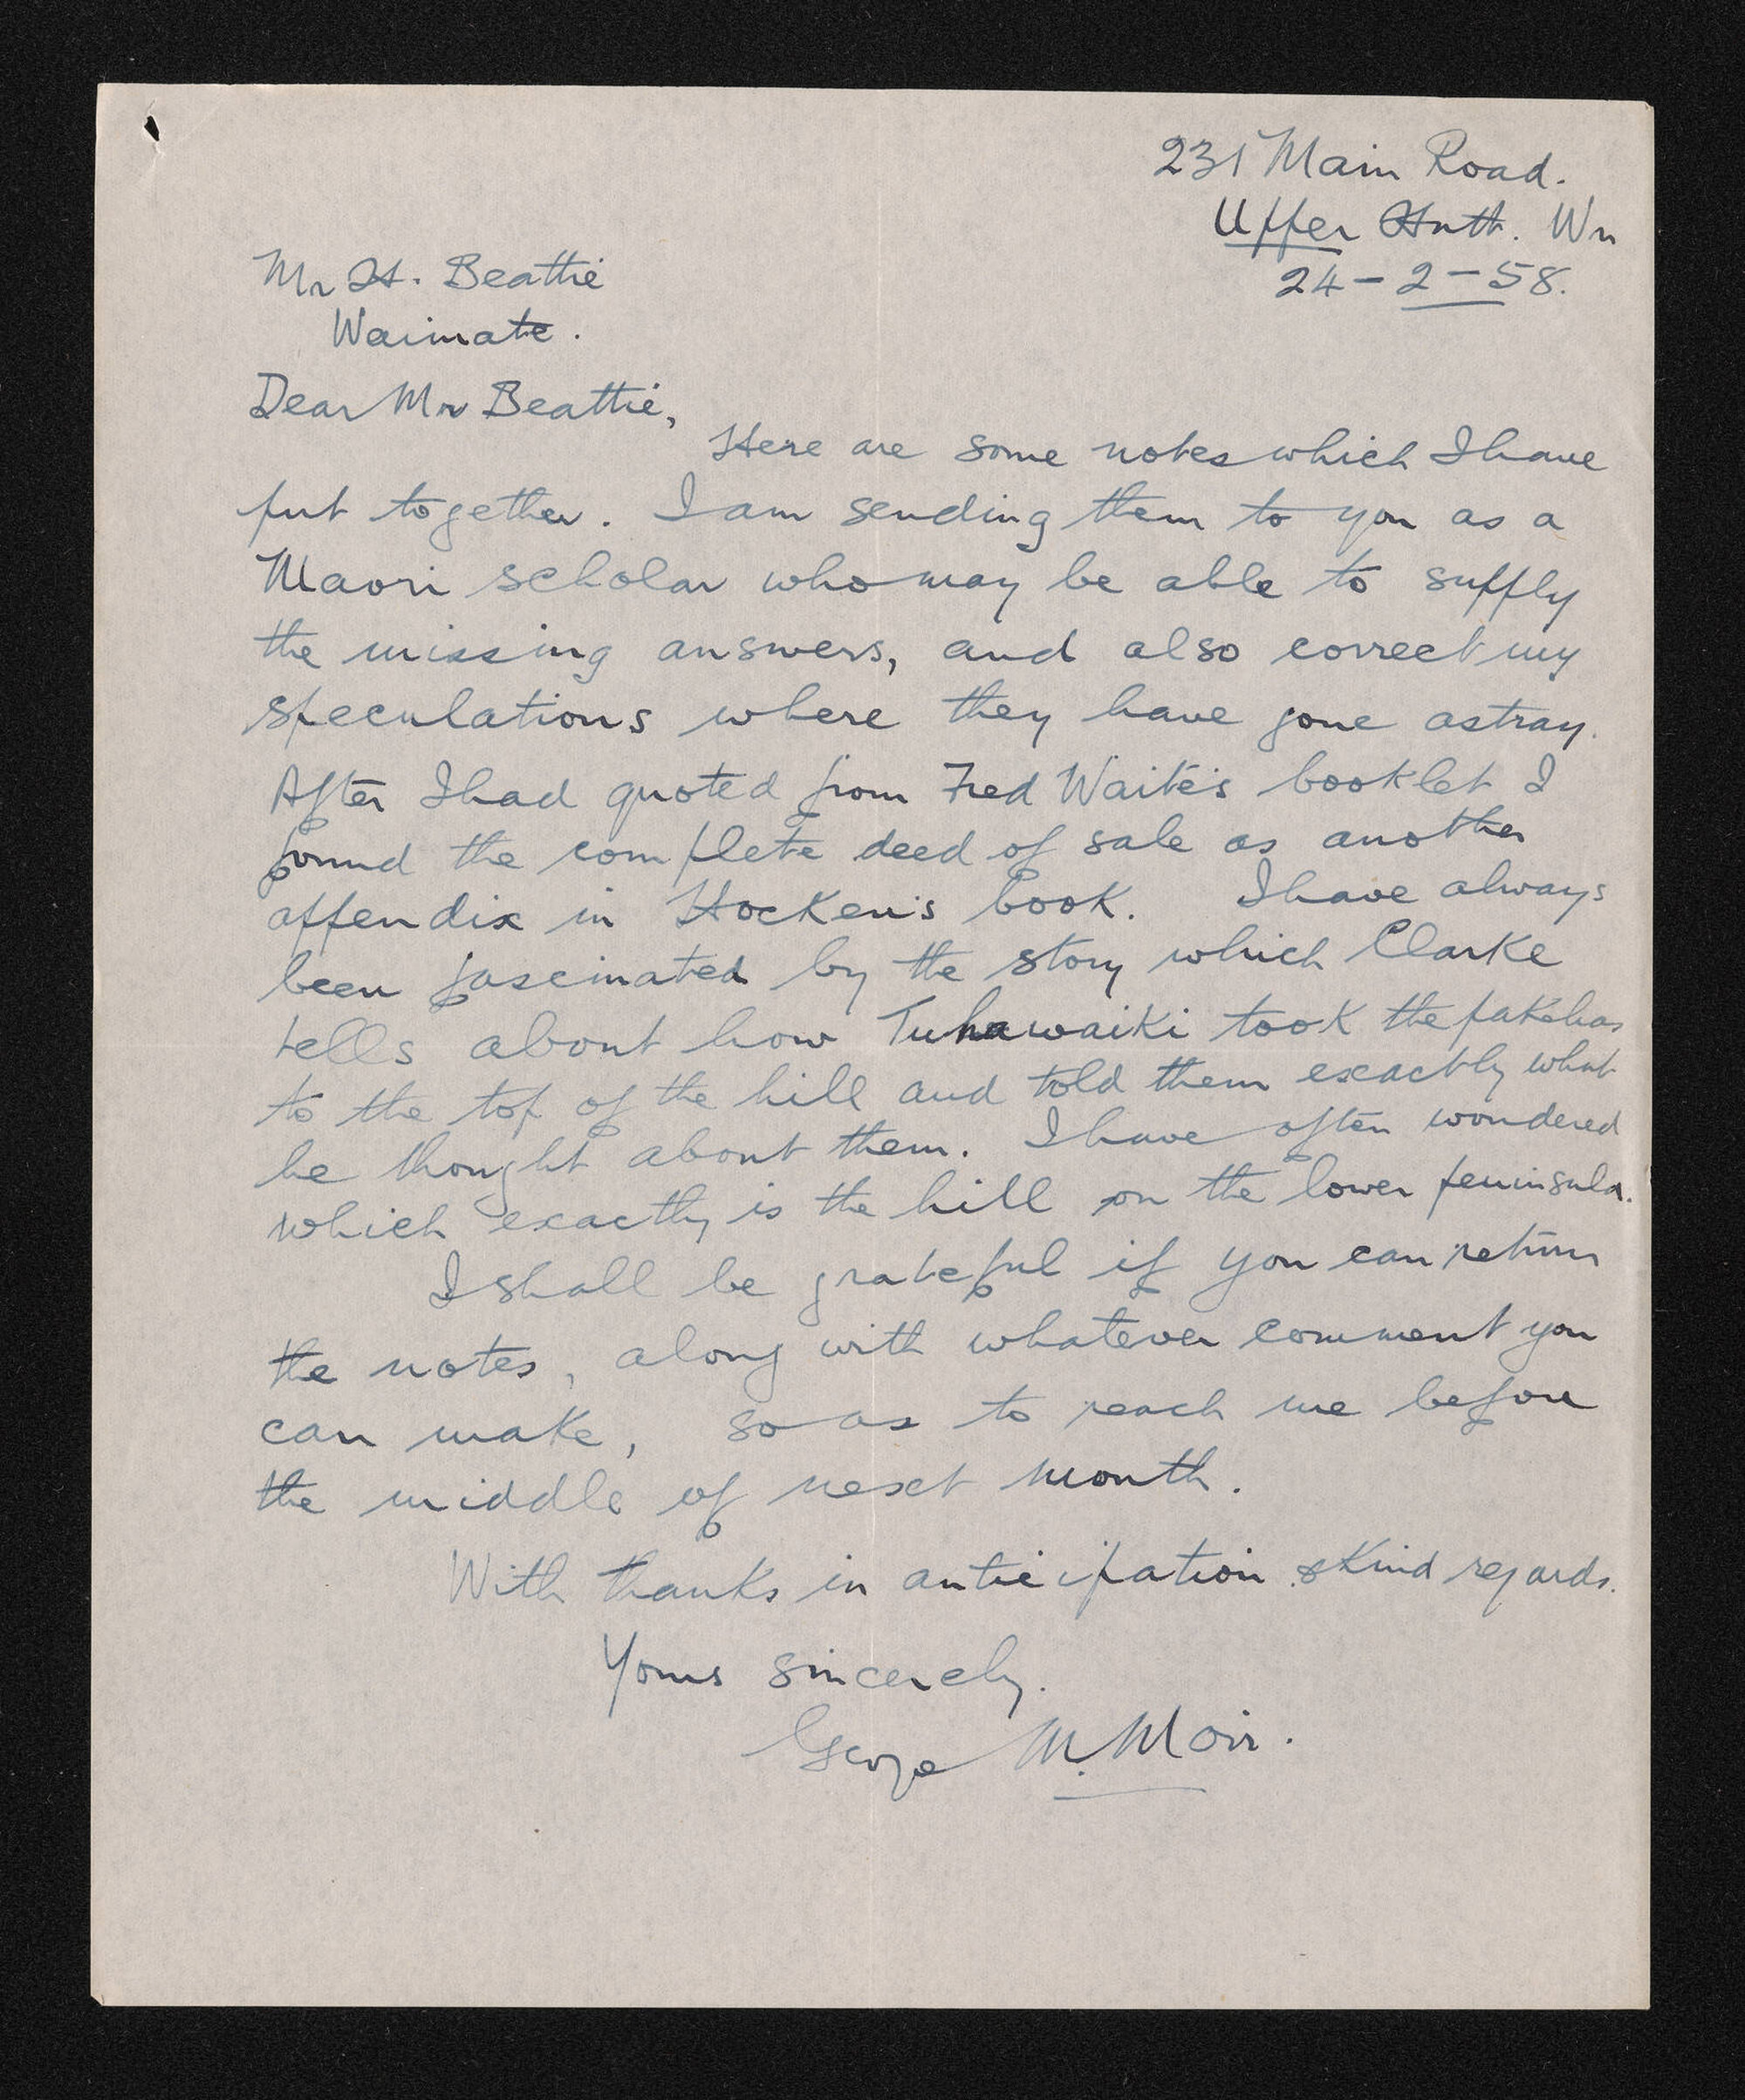 231 Main Road.
Upper Hutt. Wn
24-2-58.
Mr H. Beattie
Waimate.
Dear Mr Beattie,
Here are some notes which I have
put together. I am sending them to you as a
Maori scholar who may be able to supply
the missing answers, and also correct my
speculations where they have gone astray.
After I had quoted from Fred Waite's booklet I
found the complete deed of sale as another
appendix in Hocken's book. I have always
been fascinated by the story which Clarke
tells about how Tuhawaiki took the pakehas
to the top of the hill and told them exactly what
he thought about them. I have often wondered
which exactly is the hill on the lower peninsula.
I shall be grateful if you can return
the notes, along with whatever comment you
can make, so as to reach me before
the middle of next month.
With thanks in anticipation & kind regards.
Yours sincerely.
George M. Moir.